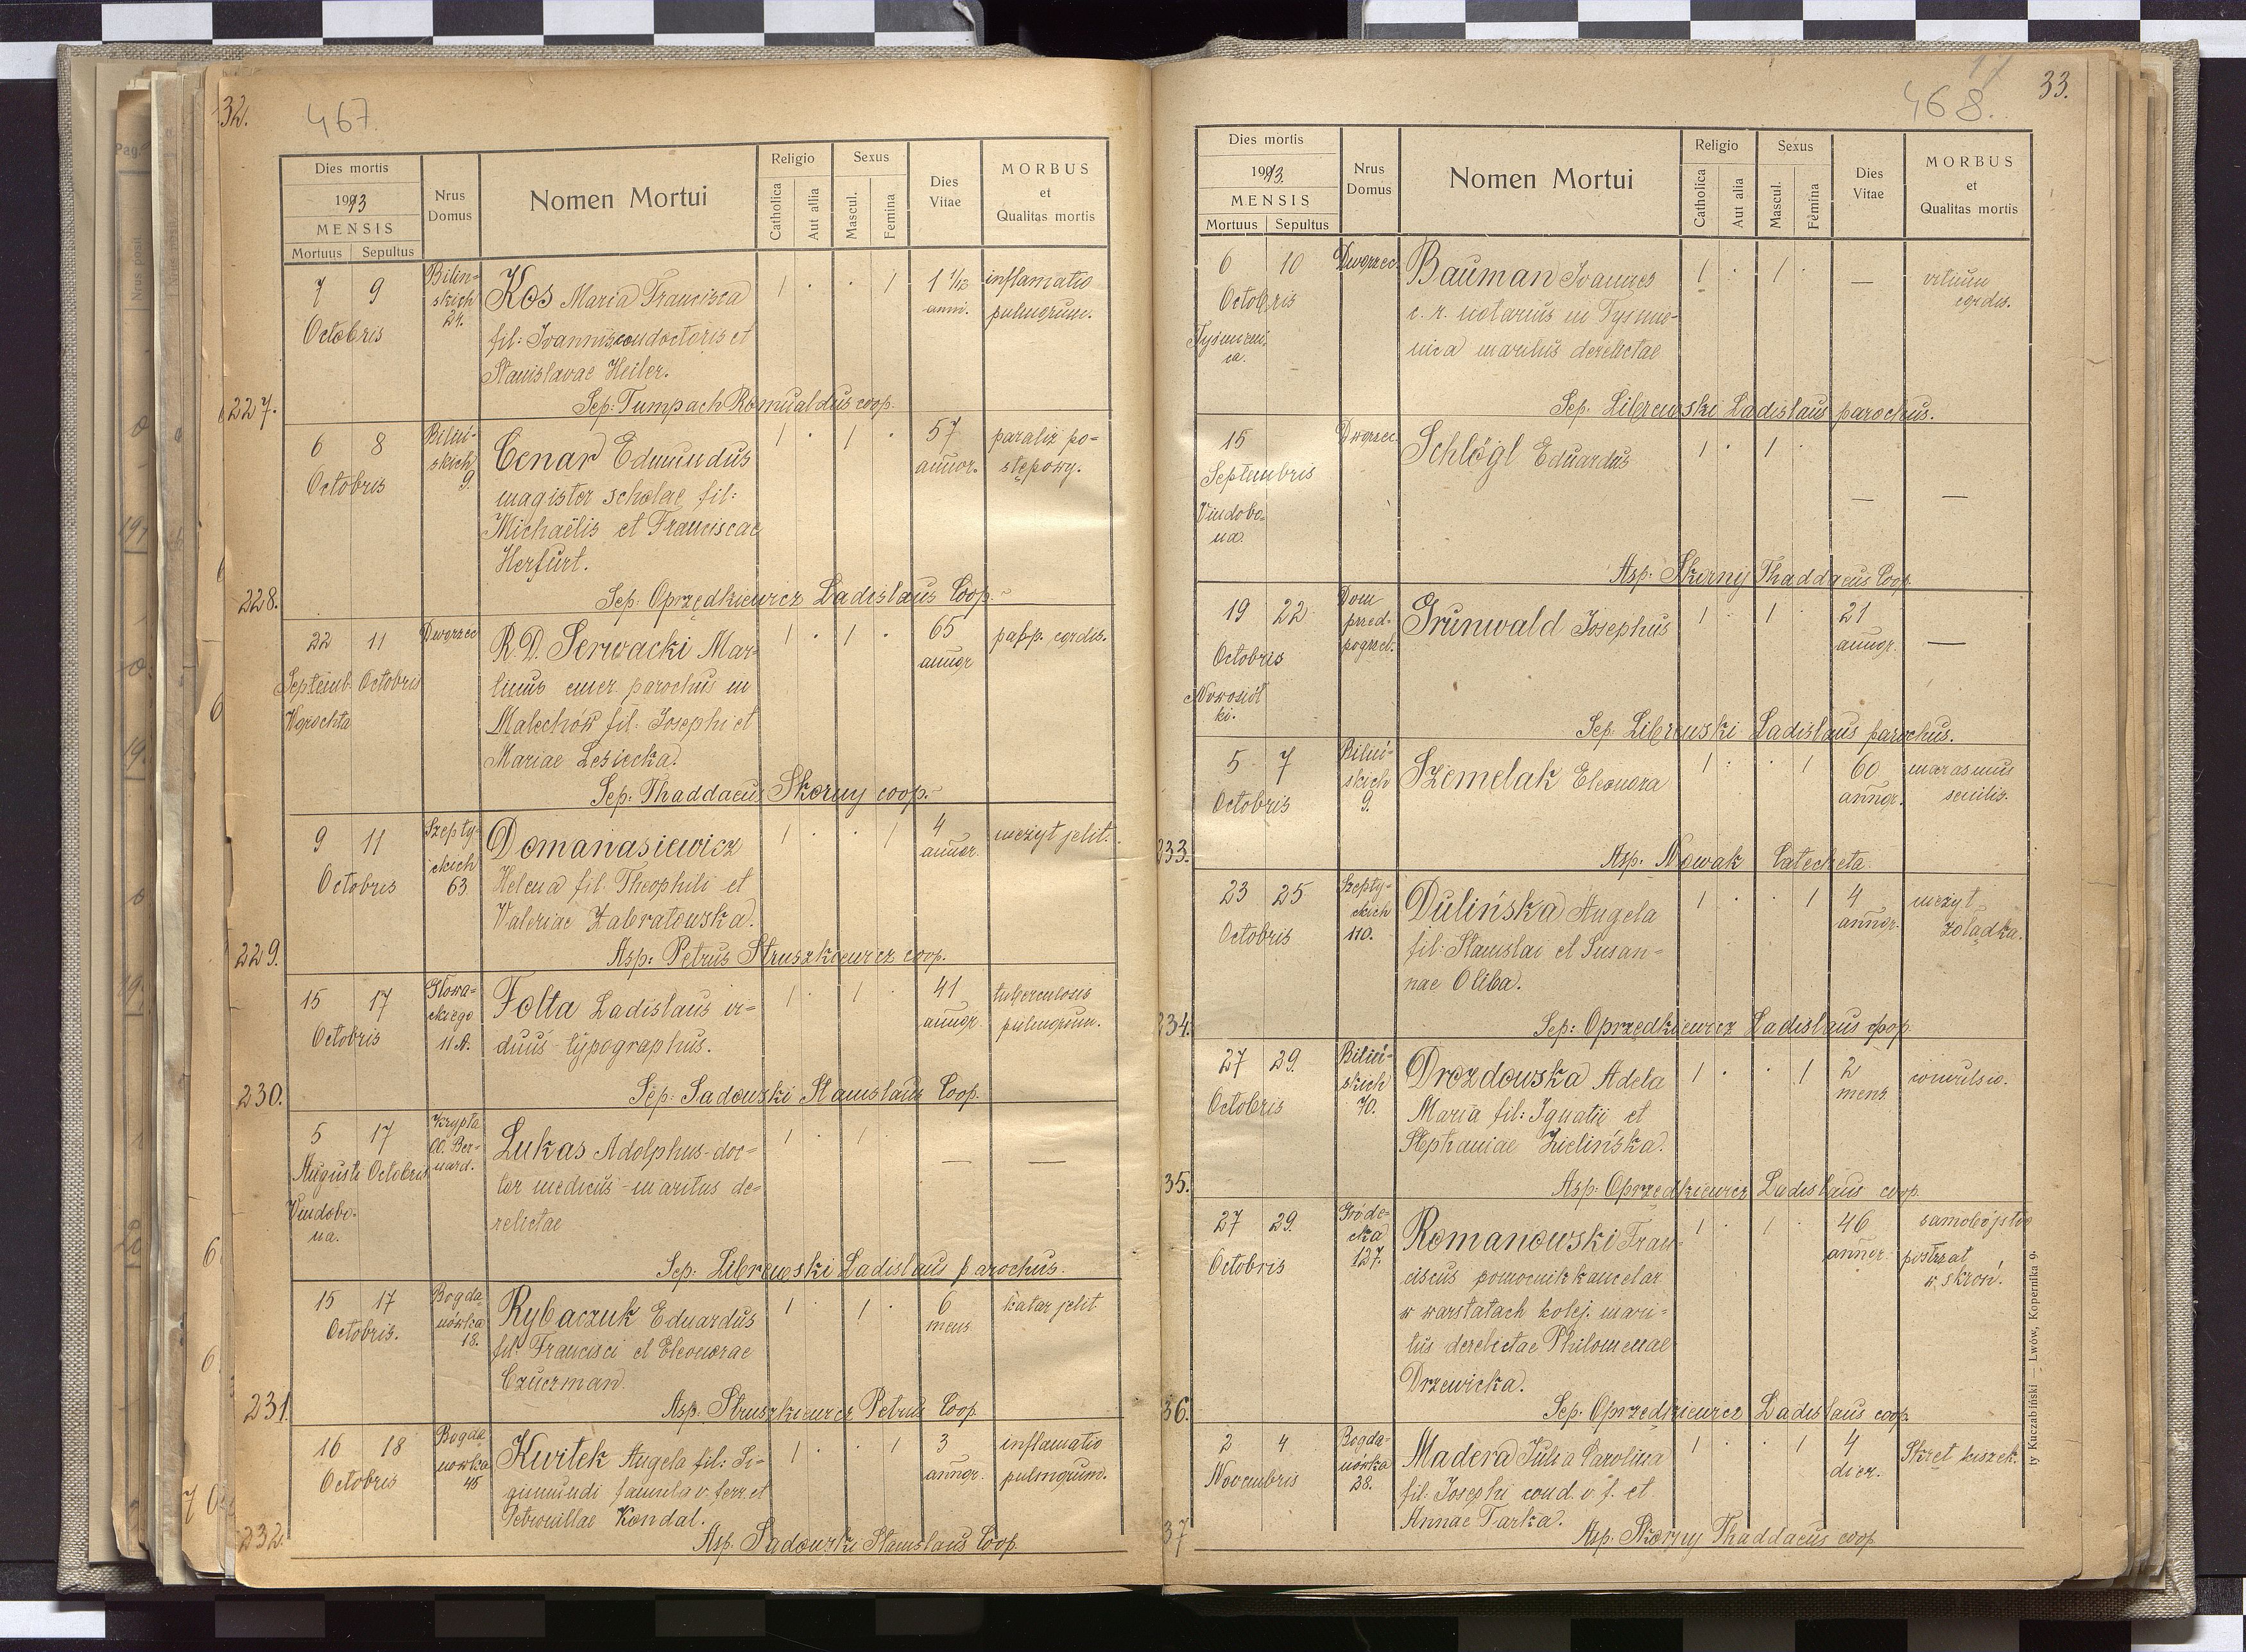 32.
467.
Dies mortis
1913
MENSIS
Mortuus Sepultus
Nrus Domus
Nomen Mortui
Religio
Catholica
Aut alia
Sexus
Mascul.
Femina
Dies Vitae
MORBUS
et
Qualitas mortis
7 9 Octobris
Bilin-
skich
24.
Kos Maria Francisca
fil: Joannis conductoris et
Stanislavae Heiler.
1 . . 1
1 1/12 anni.
inflamatio
pulmonum.
Sep: Tumpach Romualdus coop.
227.
6 8 Octobris
Biliń-
skich
9.
Cenar Edmundus
magister scholae fil:
Michaëlis et Franciscae
Herfurt.
1 . 1 .
57 annor.
paraliż po-
stępowy.
Sep: Oprzędkiewicz Ladislaus Coop.
228.
22 11
Septemb. Octobris
Worochta
Dworzec
R.D. Serwacki Mar-
tinus emer. parochus in
Malechów fil: Josephi et
Mariae Lesiecka.
1 . 1 .
65 annor
cordis.
Sep: Thaddaeus Skorny coop.
9 11 Octobris
Szepty-
ckich
63
Domanasiewicz
Helena fil: Theophili et
Valeriae Zabratowska.
1 . . 1
4 annor.
nieżyt jelit.
Asp: Petrus Struszkiewicz coop.
229.
15 17 Octobris
Słowa-
ckiego
11 A.
Folta Ladislaus vi-
duus - typographus.
1 . 1 .
41 annor.
tuberculosis
pulmonum.
Sep: Sadowski Stanislaus Coop.
230.
5 17
Augusti Octobris
Vindobo-
na.
Krypta
OO. Ber-
nard.
Lukas Adolphus - doc-
tor medicus - maritus de-
relictae
1 . 1
— —
Sep: Librewski Ladislaus parochus.
15 17 Octobris.
Bogda-
nówka
18.
Rybaczuk Eduardus
fil: Francisci et Eleonorae
Czuczman.
1 . 1 .
6 mens
katar jelit
Asp. Struszkiewicz Petrus Coop.
231.
16 18 Octobris
Bogda-
nówka
45
Kwitek Angela fil: Si-
gismundi famula v. ferr. et
Petronillae Kondal.
1 . . 1
3 annor.
inflamatio
pulmonum.
Asp. Sadowski Stanislaus Coop.
232.
468.
33.
Dies mortis
1913.
MENSIS
Mortuus Sepultus
Nrus Domus
Nomen Mortui
Religio
Catholica
Aut alia
Sexus
Mascul.
Femina
Dies Vitae
MORBUS
et
Qualitas mortis
6 10 Octobris
Tysmieni-
ca.
Dworzec.
Bauman Joannes
c. r. notarius in Tysmie-
nica maritus derelictae
1 . 1 .
—
vitium
cordis.
Sep. Librewski Ladislaus parochus.
15
Septembris
Vindobo-
na.
Dworzec.
Schlögl Eduardus
1 . 1 .
— —
Asp: Skorny Thaddaeus Coop
19 22 Octobris
Nowosiół-
ki.
Dom
przed-
pogrzeb.
Grünwald Josephus
1 . 1 .
21 annor.
—
Sep: Librewski Ladislaus parochus.
5 7 Octobris
Biliń-
skich
9.
Szemelak Eleonora
1 . . 1
60 annor.
marasmus
senilis.
Asp: Nowak Catecheta
233.
23 25 Octobris
Szepty-
ckich
110.
Dulińska Angela
fil: Stanislai et Susan-
nae Oliba.
1 . . 1
4 annor.
nieżyt
żołądka.
Sep: Oprzędkiewicz Ladislaus coop
234.
27 29. Octobris
Biliń-
skich
70.
Drozdowska Adela
Maria fil: Ignatii et
Stephaniae Zielińska.
1 . . 1
2 mens
convulsio.
Asp: Oprzędkiewicz Ladislaus coop.
35.
27 29. Octobris
Gróde-
cka
127.
Romanowski Fran-
ciscus pomocnik kancelar.
w warstatach kolej. mari-
tus derelictae Philomenae
Drzewicka.
1 . 1 .
46 annor.
samobójstwo
postrzał
w skroń.
Sep: Oprzędkiewicz Ladislaus coop.
36.
2 4 Novembris
Bogda-
nówka
38.
Madera Julia Carolina
fil: Josephi cond. v. f. et
Annae Tarka.
1 . . 1
4 dier.
Skręt kiszek.
Asp. Skorny Thaddaeus coop
37
ty Kuczabiński — Lwów, Kopernika 9.